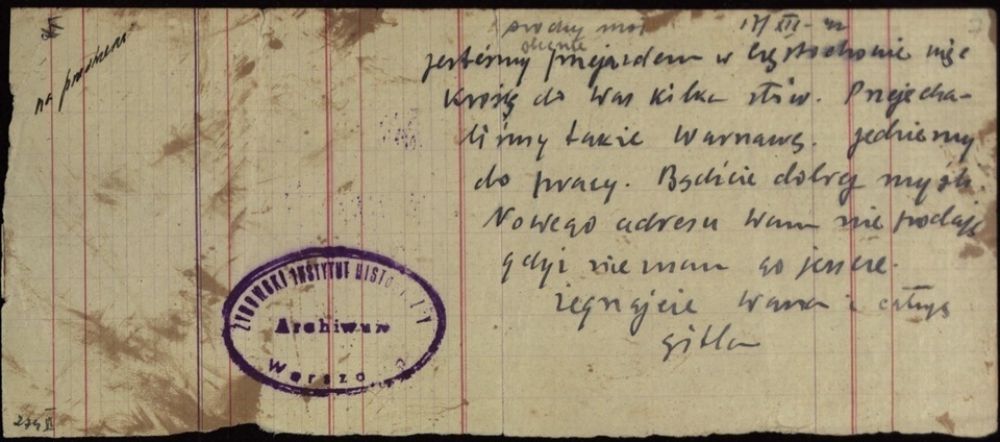 na
17/XII-42
jesteśmy przejazdem w Częstochowie więc
obecnie
Kreślę do Was kilka słów. Przejecha-
liśmy także Warszawę. jedziemy
do pracy. Bądźcie dobrej myśli.
Nowego adresu Wam nie podaję
gdyż nie mam go jeszcze.
żegnajcie Wasza i całuję
Gitla
ŻYDOWSKI INSTYTUT HISTO
Archiwum
Warsza